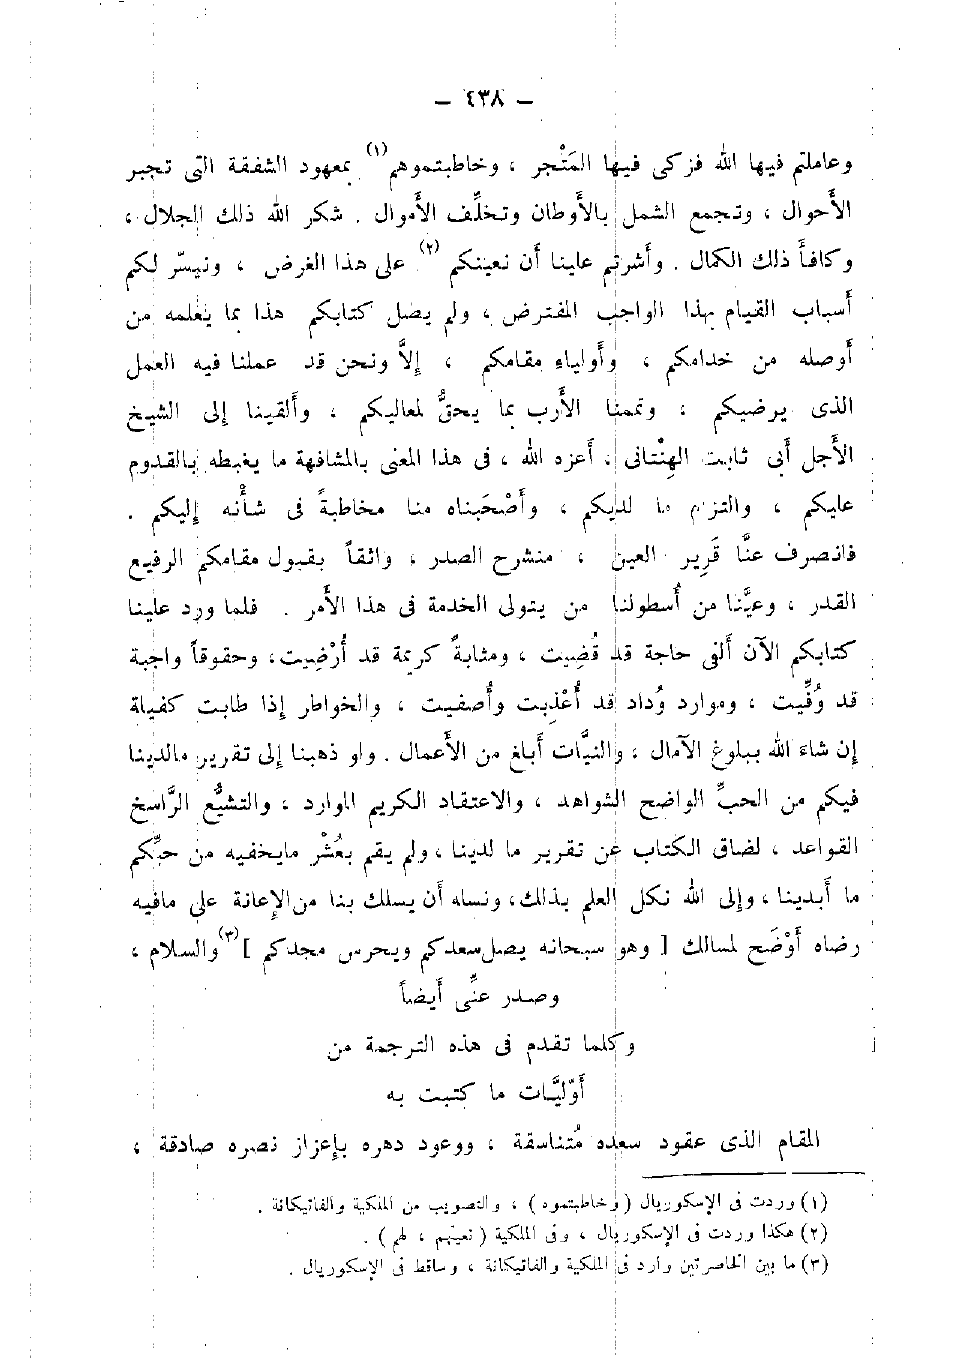 — ٤٣٨ —
وعاملتم فيها الله فزكى فيها المَتْجر ، وخاطبتموهم (١) بمعهود الشفقة التى تجبر
الأحوال ، وتجمع الشمل بالأوطان وتخلِّف الأموال . شكر الله ذلك الجلال ،
وكافأ ذلك الكمال . وأشرتم علينا أن نعينكم (٢) على هذا الغرض ، ونيسّر لكم
أسباب القيام بهذا الواجب المفترض ، ولم يصل كتابكم هذا بما يعلمه من
أوصله من خدامكم ، وأولياء مقامكم ، إلاَّ ونحن قد عملنا فيه العمل
الذى يرضيكم ، وتممنا الأرب بما يحقُّ لمعاليكم ، وألقينا إلى الشيخ
الأجل أبى ثابت الهِنْتانى ، أعزه الله ، فى هذا المعنى بالمشافهة ما يغبطه بالقدوم
عليكم ، والتزام ما لديكم ، وأصْحَبناه منا مخاطبةً فى شأنه إليكم .
فانصرف عنَّا قَرِير العين ، منشرح الصدر ، واثقاً بقبول مقامكم الرفيع
القدر ، وعيَّنا من أُسطولنا من يتولى الخدمة فى هذا الأمر . فلما ورد علينا
كتابكم الآن ألفى حاجة قد قُضِيت ، ومثابةً كريمة قد أُرْضِيت، وحقوقاً واجبة
قد وُفِّيت ، وموارد وُداد قد أُعْذِبت وأُصفيت ، والخواطر إذا طابت كفيلة
إن شاء الله ببلوغ الآمال ، والنيَّات أبلغ من الأعمال . ولو ذهبنا إلى تقرير مالدينا
فيكم من الحبِّ الواضح الشواهد ، والاعتقاد الكريم الموارد ، والتشيُّع الرَّاسخ
القواعد ، لضاق الكتاب عن تقرير ما لدينا ، ولم يقم بعُشْر مايخفيه من حبِّكم
ما أبدينا ، وإلى الله نكل العلم بذلك، ونسله أن يسلك بنا من الإعانة على مافيه
رضاه أوْضَح لمسالك [ وهو سبحانه يصل سعدكم ويحرس مجدكم ] (٣) والسلام ،
وصدر عنِّى أيضاً
وكلما تقدم فى هذه الترجمة من
أوّليَّات ما كتبت به
المقام الذى عقود سعده مُتناسقة ، ووعود دهره بإعزاز نصره صادقة ،
(١) وردت فى الإسكوريال ( وخاطبتموه ) ، والتصويب من الملكية والفاتيكانة .
(٢) هكذا وردت فى الإسكوريال ، وفى الملكية ( نعينهم ، لهم ) .
(٣) ما بين الخاصرتين وارد فى الملكية والفاتيكانة ، وساقط فى الإسكوريال .